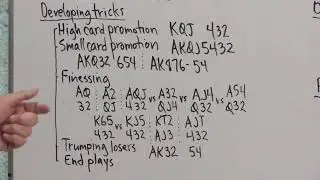 Developing tricks
High card promotion KQJ 432
Small card promotion AKQJ5432
AKQ32 654 AK976-54
Finessing
AQ A2 AQJ vs A32 vs AJ4 vs A54
32 QJ 432 QJ4 Q32 Q32
K65 vs KJ5 KT2 AJT
432 432 AJ3 432
Trumping losers AK32 54
End plays